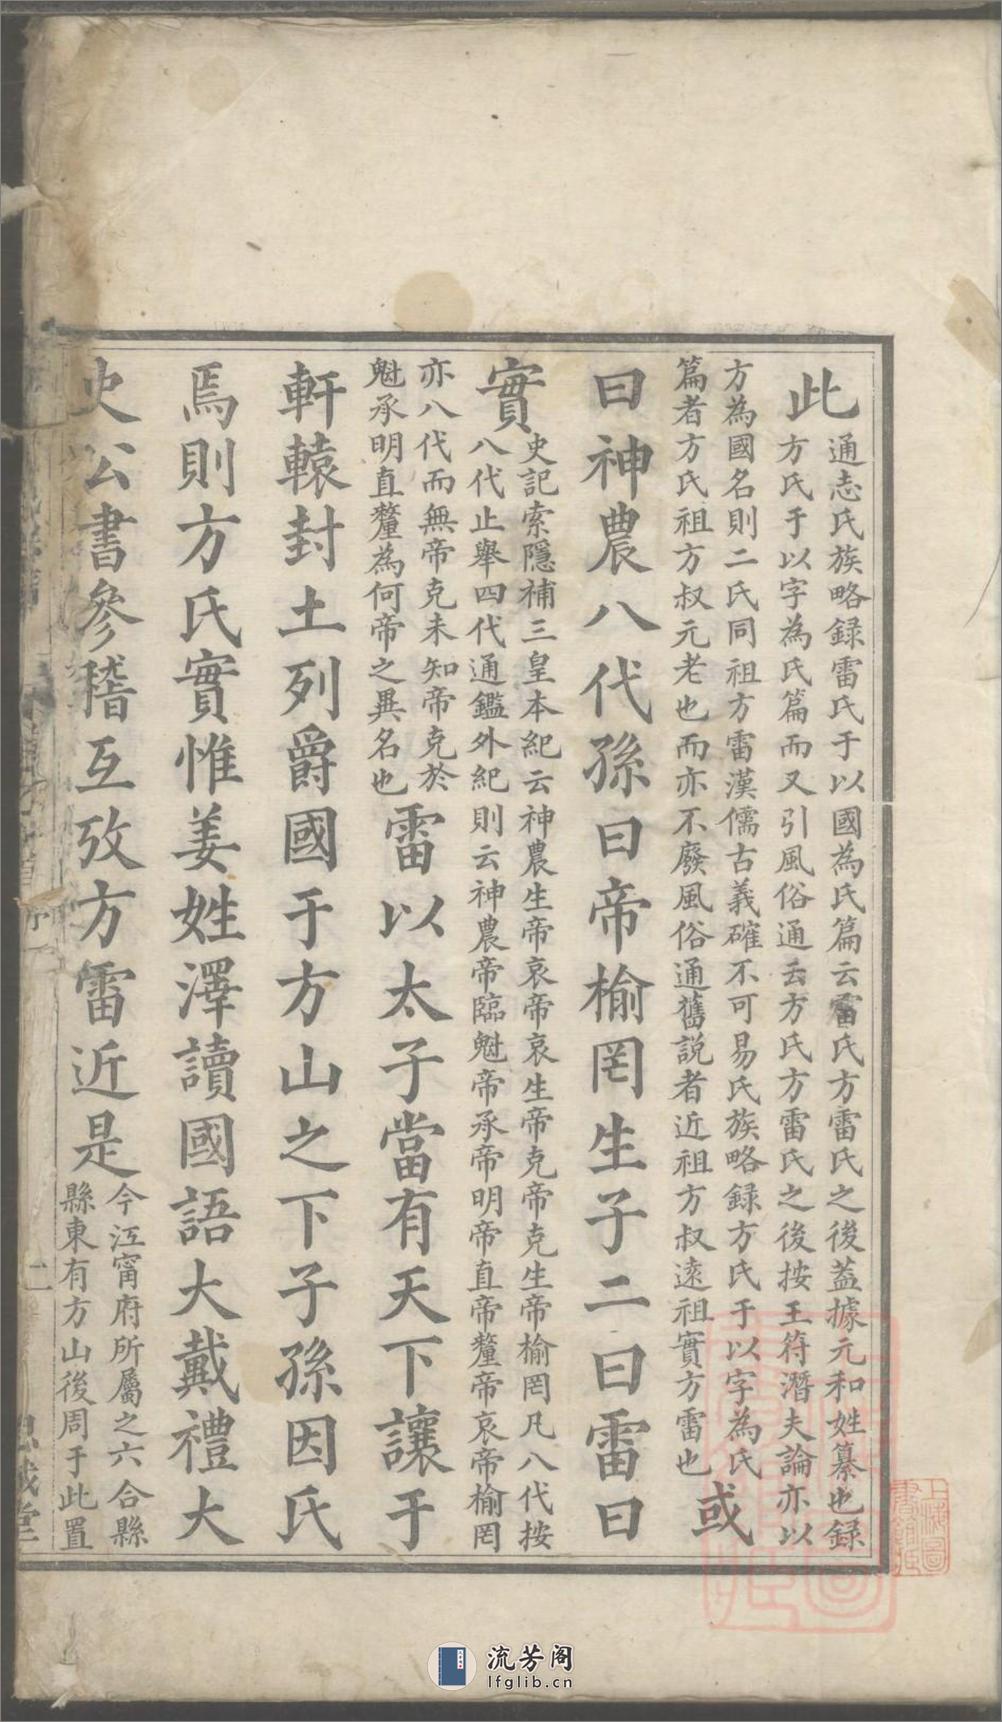 此通志氏族略錄雷氏于以國為氏篇云雷氏方雷氏之後蓋據元和姓纂也錄
方氏于以字為氏篇而又引風俗通云方氏方雷氏之後按王符潛夫論亦以
方為國名則二氏同祖方雷漢儒古義確不可易氏族略錄方氏于以字為氏
篇者方氏祖方叔元老也而亦不廢風俗通舊說者近祖方叔遠祖實方雷也
或
曰神農八代孫曰帝榆罔生子二曰雷曰
實史記索隱補三皇本紀云神農生帝哀帝哀生帝克帝克生帝榆罔凡八代按
八代止舉四代通鑑外紀則云神農帝臨魁帝承帝明帝直帝釐帝哀帝榆罔
亦八代而無帝克未知帝克於
魁承明直釐為何帝之異名也
雷以太子當有天下讓于
軒轅封土列爵國于方山之下子孫因氏
焉則方氏實惟姜姓澤讀國語大戴禮大
史公書參稽互攷方雷近是今江甯府所屬之六合縣
縣東有方山後周于此置
二
堂
上海圖書館藏
流芳阁
lfglib.cn